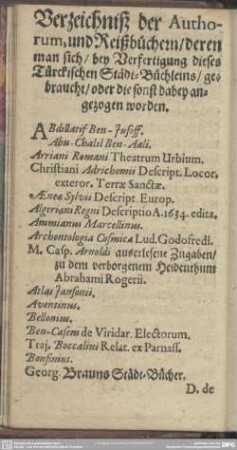 Verzeichniß der Autho-
rum, und Reißbüchern / deren
man sich / bey Verfertigung dieses
Türckischen Städt-Büchleins / ge-
braucht / oder die sonst dabey an-
gezogen worden.
ABdillatif Ben-Jusoff.
Abu-Chalil Ben-Aali.
Arriani Romani Theatrum Urbium.
Christiani Adrichomii Descript. Locor.
exteror. Terræ Sanctæ.
Æneæ Sylvii Descript. Europ.
Algeriani Regni Descriptio A. 1634. edita.
Ammianus Marcellinus.
Archontologia Cosmica Lud. Godofredi.
M. Casp. Arnoldi auserlesene Zugaben /
zu dem verborgenem Heidenthum
Abrahami Rogerii.
Atlas Jansonii.
Aventinus.
Bellonius.
Ben-Casem de Viridar. Electorum.
Troj. Boccalini Relat. ex Parnass.
Bonfinius.
Georg. Brauns Städt-Bücher.
D. de